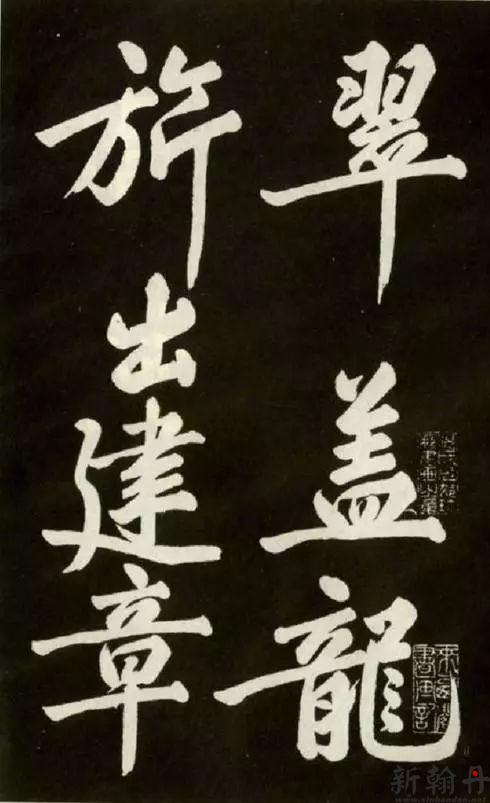 翠盖龍
旂出建章
新翰丹